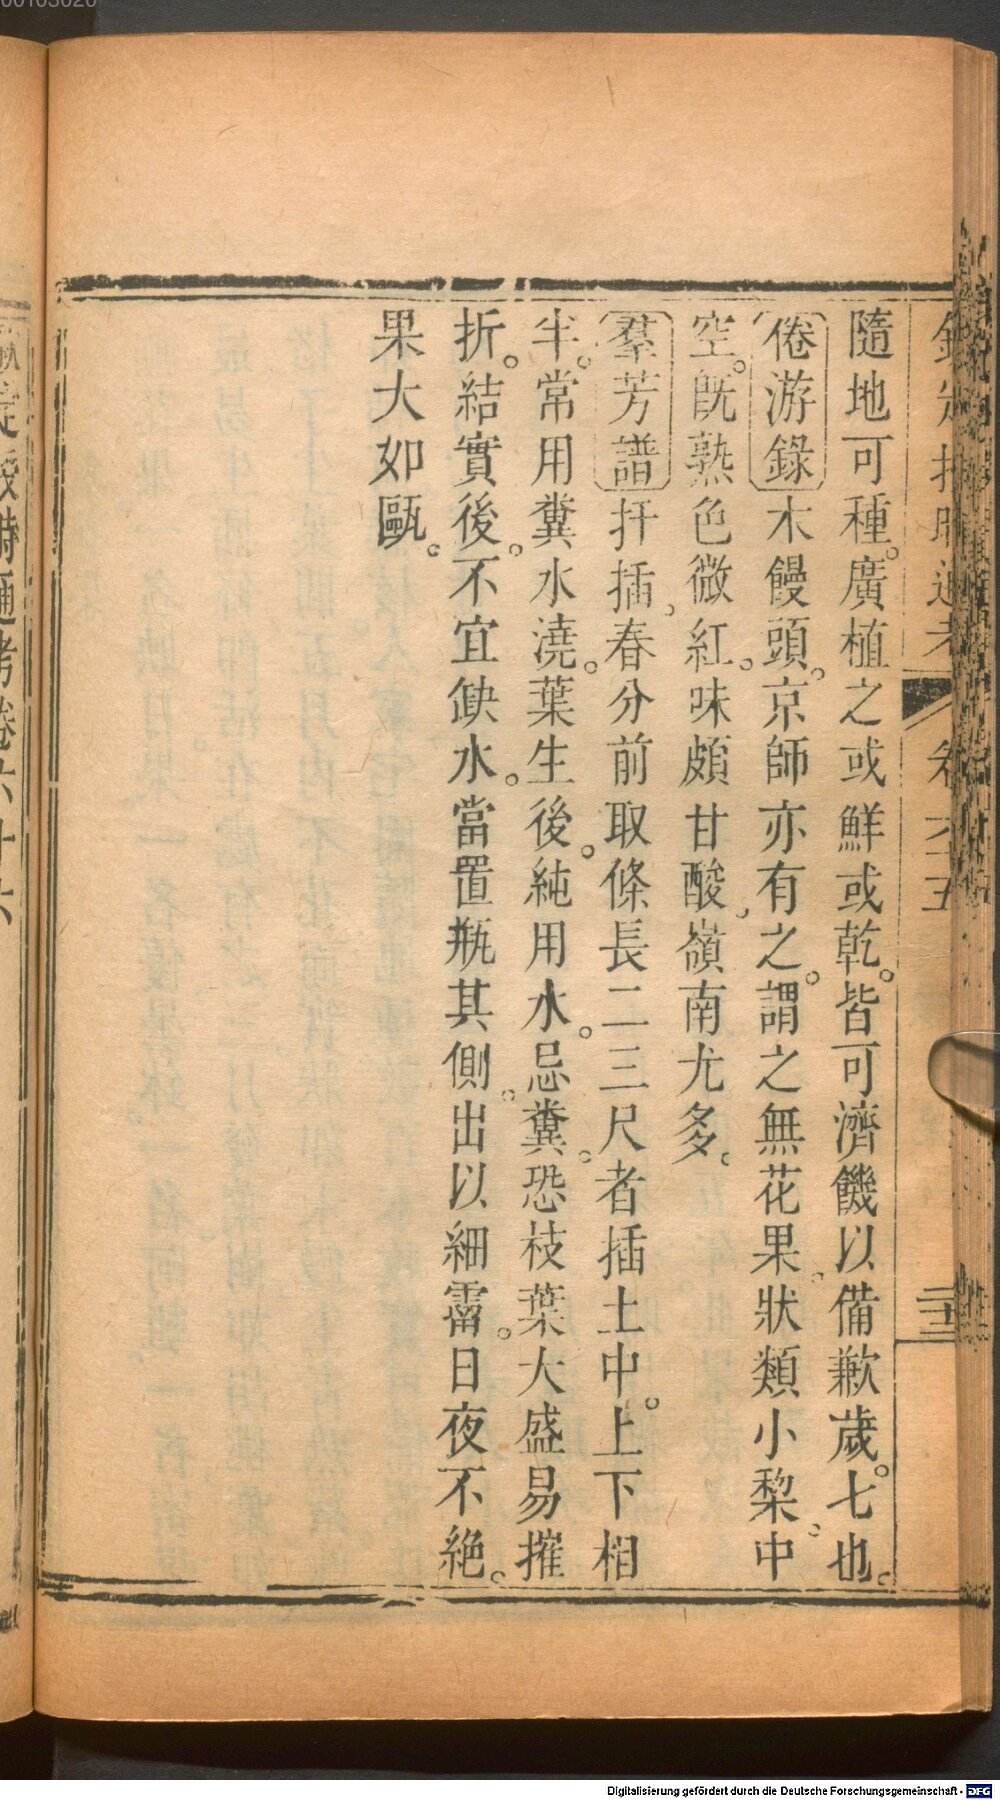 00103020
隨地可種。廣植之或鮮或乾。皆可濟饑以備歉歲。七也。
倦游錄木饅頭。京師亦有之。謂之無花果。狀類小棃。中
空。旣熟色微紅。味頗甘酸。嶺南尤多。
羣芳譜扦插。春分前取條長二三尺者插土中。上下相
半。常用糞水澆。葉生後。純用水。忌糞。恐枝葉大盛易摧
折。結實後。不宜缺水。當置瓶其側。出以細霤。日夜不絕。
果大如甌。
授時通考卷六十六
Digitalisierung gefördert durch die Deutsche Forschungsgemeinschaft - DFG